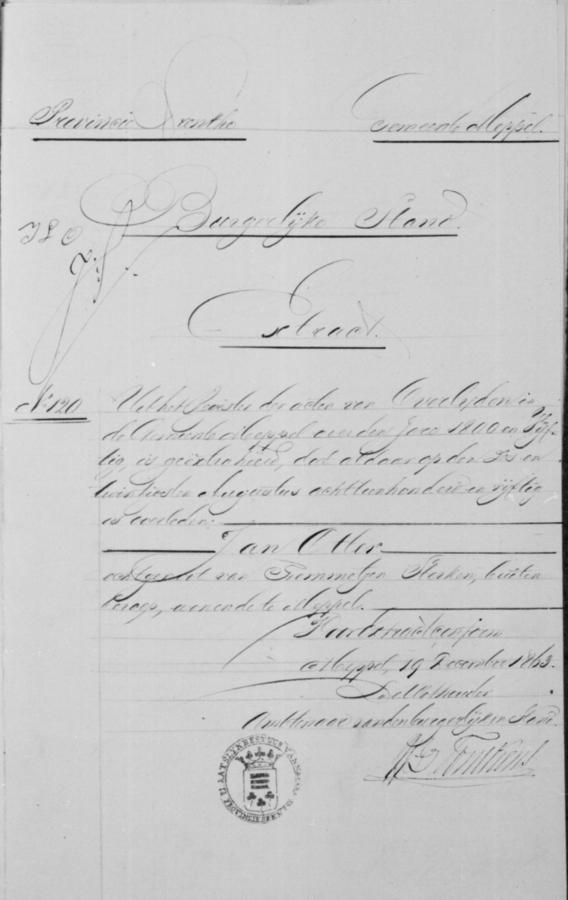 Provincie Drenthe
Gemeente Meppel.
Burgerlijke Stand.
Extract.
No 120
Uit het Register der acten van Overlijden in
de Gemeente Meppel over den Jare 1800 en Vijf-
tig, is geëxtraheerd, dat aldaar op den Zes en
twintigsten Augustus achttienhonderd en vijftig
is overleden:
Jan Otter
echtgenoot van Femmetjen Sterken, buiten
beroep, wonende te Meppel.
Voor Extract conform
Meppel, 19 December 1863.
De Wethouder
Ambtenaar van den burgerlijken Stand.